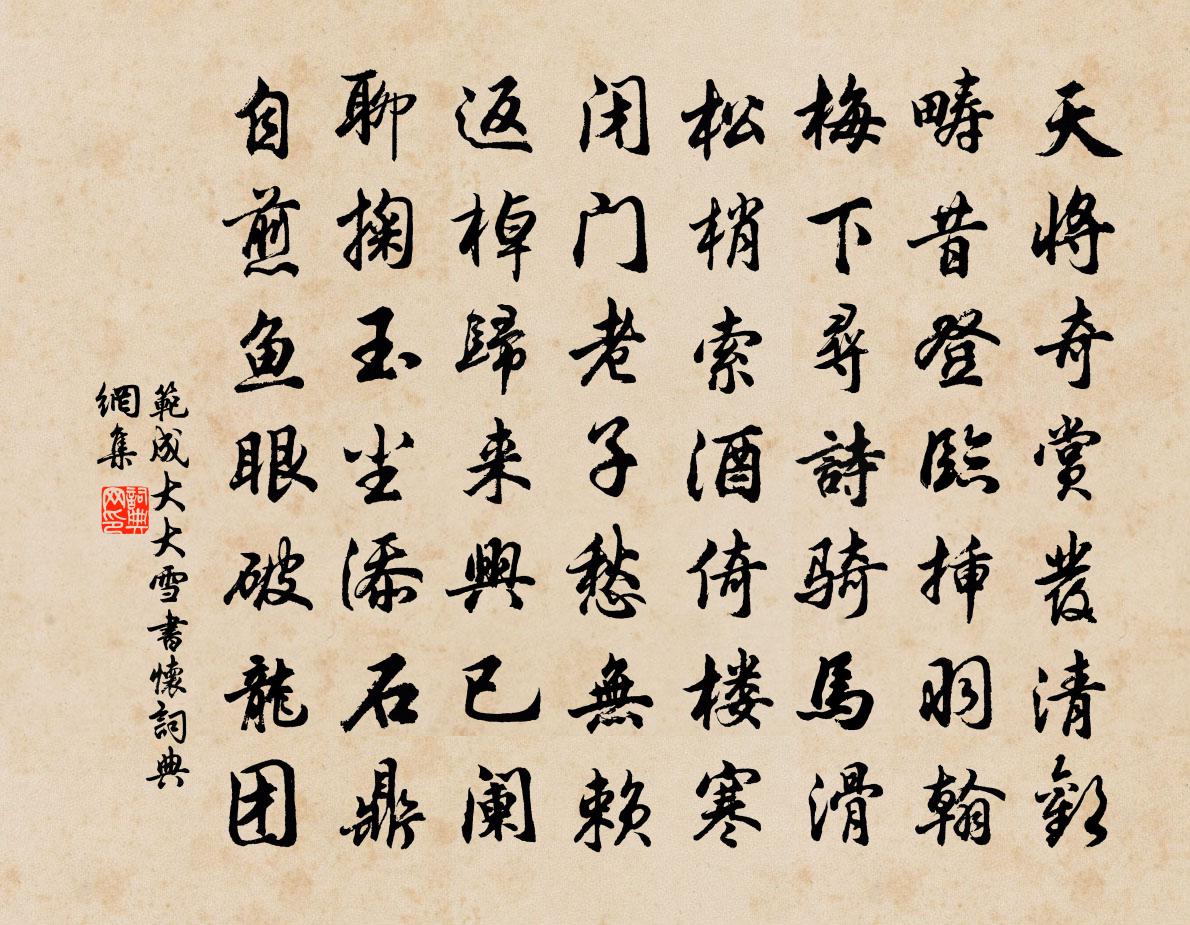 天將奇賞發清歡
疇昔登臨插羽翰
梅下尋詩騎馬滑
松梢索酒倚楼寒
闭门老子愁無賴
返棹歸来興已阑
聊掬玉尘添石鼎
自煎鱼眼破龍团
範成大大雪書懷詞典
網集
詞典
网印